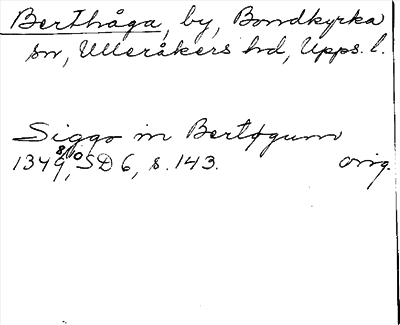 Berthåga, by, Bondkyrka
sn, Ulleråkers hd, Upps. l.
Siggo in Bertøgum
1349 8/10, SD 6, s. 143. orig.